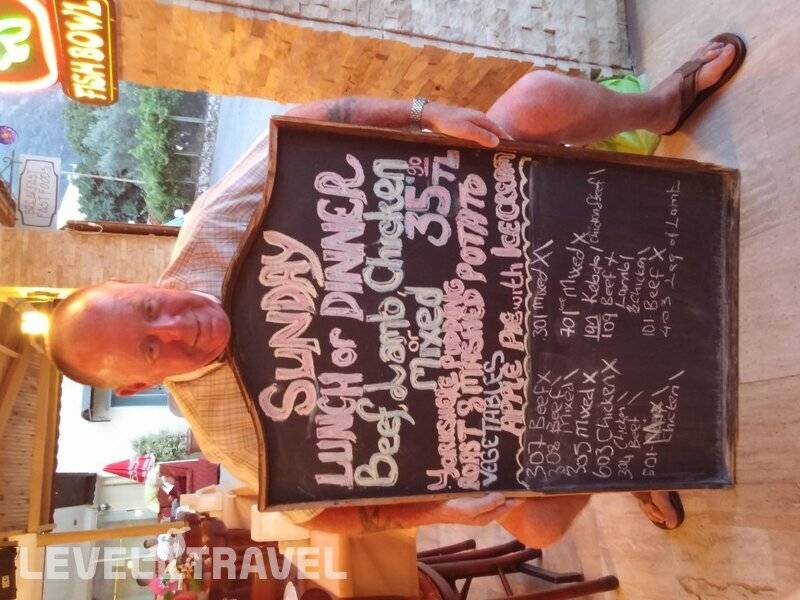 FISH BOWL
BREAKFAST
FAST FOODS
SUNDAY
LUNCH or DINNER
Beef, Lamb, Chicken
or
Mixed
35.90 TL
YORKSHIRE PUDDING
ROAST & MASHED POTATO
VEGETABLES
APPLE PIE with ICECREAM
307 Beef X
308 Beef \
2 Mixed \
205 Mixed X
603 Chicken X
304 Chicken \
Beef
501
Chicken \
301 Mixed X \
701 Mixed X
140 Kebabs / Chicken & Beef \
109 Beef X
Lamb
& chicken
101 Beef X
403 Leg of Lamb
LEVEL TRAVEL